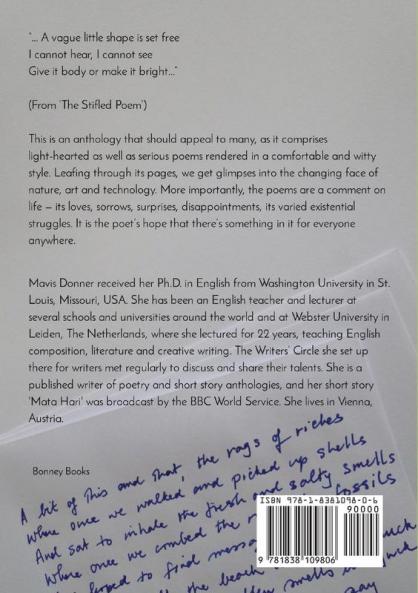 "... A vague little shape is set free
I cannot hear, I cannot see
Give it body or make it bright..."
(From 'The Stifled Poem')
This is an anthology that should appeal to many, as it comprises
light-hearted as well as serious poems rendered in a comfortable and witty
style. Leafing through its pages, we get glimpses into the changing face of
nature, art and technology. More importantly, the poems are a comment on
life – its loves, sorrows, surprises, disappointments, its varied existential
struggles. It is the poet's hope that there's something in it for everyone
anywhere.
Mavis Donner received her Ph.D. in English from Washington University in St.
Louis, Missouri, USA. She has been an English teacher and lecturer at
several schools and universities around the world and at Webster University in
Leiden, The Netherlands, where she lectured for 22 years, teaching English
composition, literature and creative writing. The Writers' Circle she set up
there for writers met regularly to discuss and share their talents. She is a
published writer of poetry and short story anthologies, and her short story
'Mata Hari' was broadcast by the BBC World Service. She lives in Vienna,
Austria.
Bonney Books
A bit of this and that, the rags of riches
Where once we walked and picked up shells
And sat to inhale the fresh and salty smells
Where once we combed the fossils
to find
the beach
smells
say
ISBN 978-1-8381098-0-6
90000
9 781838 109806